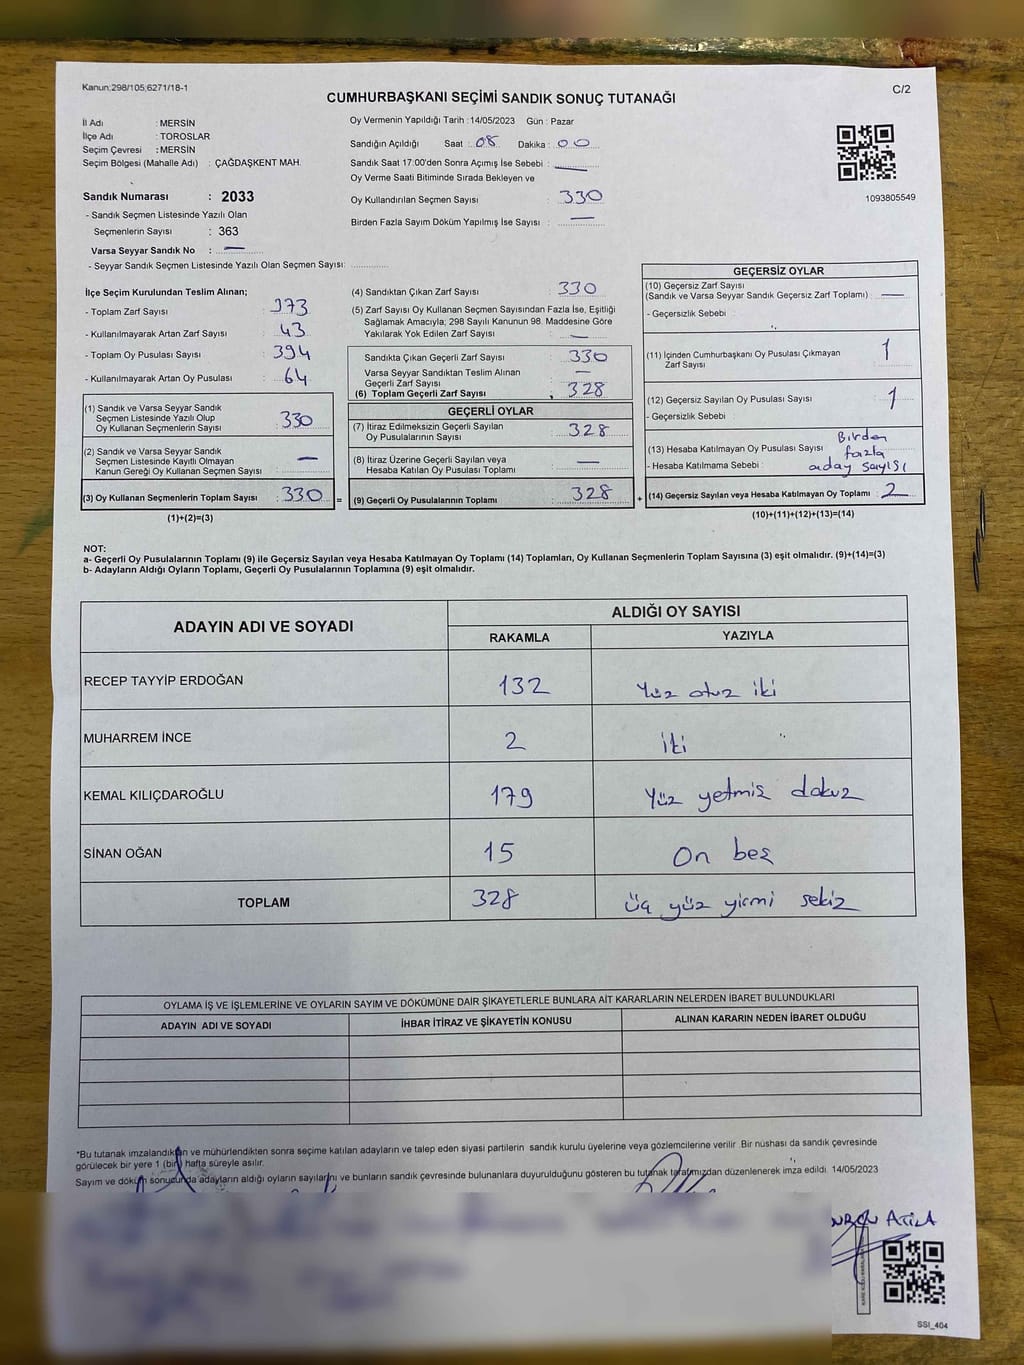 Kanun;298/105;6271/18-1
C/2
CUMHURBAŞKANI SEÇİMİ SANDIK SONUÇ TUTANAĞI
İl Adı : MERSİN
İlçe Adı : TOROSLAR
Seçim Çevresi : MERSİN
Seçim Bölgesi (Mahalle Adı) : ÇAĞDAŞKENT MAH.
Sandık Numarası : 2033
- Sandık Seçmen Listesinde Yazılı Olan
Seçmenlerin Sayısı : 363
Varsa Seyyar Sandık No : —
- Seyyar Sandık Seçmen Listesinde Yazılı Olan Seçmen Sayısı: ..............
Oy Vermenin Yapıldığı Tarih :14/05/2023 Gün : Pazar
Sandığın Açıldığı Saat : 08 Dakika : 00
Sandık Saat 17:00'den Sonra Açımış İse Sebebi : —
Oy Verme Saati Bitiminde Sırada Bekleyen ve
Oy Kullandırılan Seçmen Sayısı : 330
Birden Fazla Sayım Döküm Yapılmış İse Sayısı : —
1093805549
İlçe Seçim Kurulundan Teslim Alınan;
- Toplam Zarf Sayısı : 373
- Kullanılmayarak Artan Zarf Sayısı : 43
- Toplam Oy Pusulası Sayısı : 394
- Kullanılmayarak Artan Oy Pusulası : 64
(1) Sandık ve Varsa Seyyar Sandık
Seçmen Listesinde Yazılı Olup
Oy Kullanan Seçmenlerin Sayısı : 330
(2) Sandık ve Varsa Seyyar Sandık
Seçmen Listesinde Kayıtlı Olmayan
Kanun Gereği Oy Kullanan Seçmen Sayısı : —
(3) Oy Kullanan Seçmenlerin Toplam Sayısı : 330 =
(1)+(2)=(3)
(4) Sandıktan Çıkan Zarf Sayısı : 330
(5) Zarf Sayısı Oy Kullanan Seçmen Sayısından Fazla İse, Eşitliği
Sağlamak Amacıyla; 298 Sayılı Kanunun 98. Maddesine Göre
Yakılarak Yok Edilen Zarf Sayısı : —
Sandıkta Çıkan Geçerli Zarf Sayısı : 330
Varsa Seyyar Sandıktan Teslim Alınan
Geçerli Zarf Sayısı : —
(6) Toplam Geçerli Zarf Sayısı : 328
GEÇERLİ OYLAR
(7) İtiraz Edilmeksizin Geçerli Sayılan
Oy Pusulalarının Sayısı : 328
(8) İtiraz Üzerine Geçerli Sayılan veya
Hesaba Katılan Oy Pusulası Toplamı : —
(9) Geçerli Oy Pusulalarının Toplamı : 328 +
GEÇERSİZ OYLAR
(10) Geçersiz Zarf Sayısı
(Sandık ve Varsa Seyyar Sandık Geçersiz Zarf Toplamı) : —
- Geçersizlik Sebebi :
(11) İçinden Cumhurbaşkanı Oy Pusulası Çıkmayan
Zarf Sayısı : 1
(12) Geçersiz Sayılan Oy Pusulası Sayısı : 1
- Geçersizlik Sebebi :
(13) Hesaba Katılmayan Oy Pusulası Sayısı : Birden
fazla
- Hesaba Katılmama Sebebi : aday sayısı
(14) Geçersiz Sayılan veya Hesaba Katılmayan Oy Toplamı : 2
(10)+(11)+(12)+(13)=(14)
NOT:
a- Geçerli Oy Pusulalarının Toplamı (9) ile Geçersiz Sayılan veya Hesaba Katılmayan Oy Toplamı (14) Toplamları, Oy Kullanan Seçmenlerin Toplam Sayısına (3) eşit olmalıdır. (9)+(14)=(3)
b- Adayların Aldığı Oyların Toplamı, Geçerli Oy Pusulalarının Toplamına (9) eşit olmalıdır.
ADAYIN ADI VE SOYADI
ALDIĞI OY SAYISI
RAKAMLA YAZIYLA
RECEP TAYYİP ERDOĞAN 132 Yüz otuz iki
MUHARREM İNCE 2 iki
KEMAL KILIÇDAROĞLU 179 Yüz yetmiş dokuz
SİNAN OĞAN 15 On beş
TOPLAM 328 üç yüz yirmi sekiz
OYLAMA İŞ VE İŞLEMLERİNE VE OYLARIN SAYIM VE DÖKÜMÜNE DAİR ŞİKAYETLERLE BUNLARA AİT KARARLARIN NELERDEN İBARET BULUNDUKLARI
ADAYIN ADI VE SOYADI İHBAR İTİRAZ VE ŞİKAYETİN KONUSU ALINAN KARARIN NEDEN İBARET OLDUĞU
*Bu tutanak imzalandıktan ve mühürlendikten sonra seçime katılan adayların ve talep eden siyasi partilerin sandık kurulu üyelerine veya gözlemcilerine verilir. Bir nüshası da sandık çevresinde
görülecek bir yere 1 (bir) hafta süreyle asılır.
Sayım ve döküm sonucunda adayların aldığı oyların sayılarını ve bunların sandık çevresinde bulunanlara duyurulduğunu gösteren bu tutanak tarafımızdan düzenlenerek imza edildi. 14/05/2023
ATİLA
SSI_404